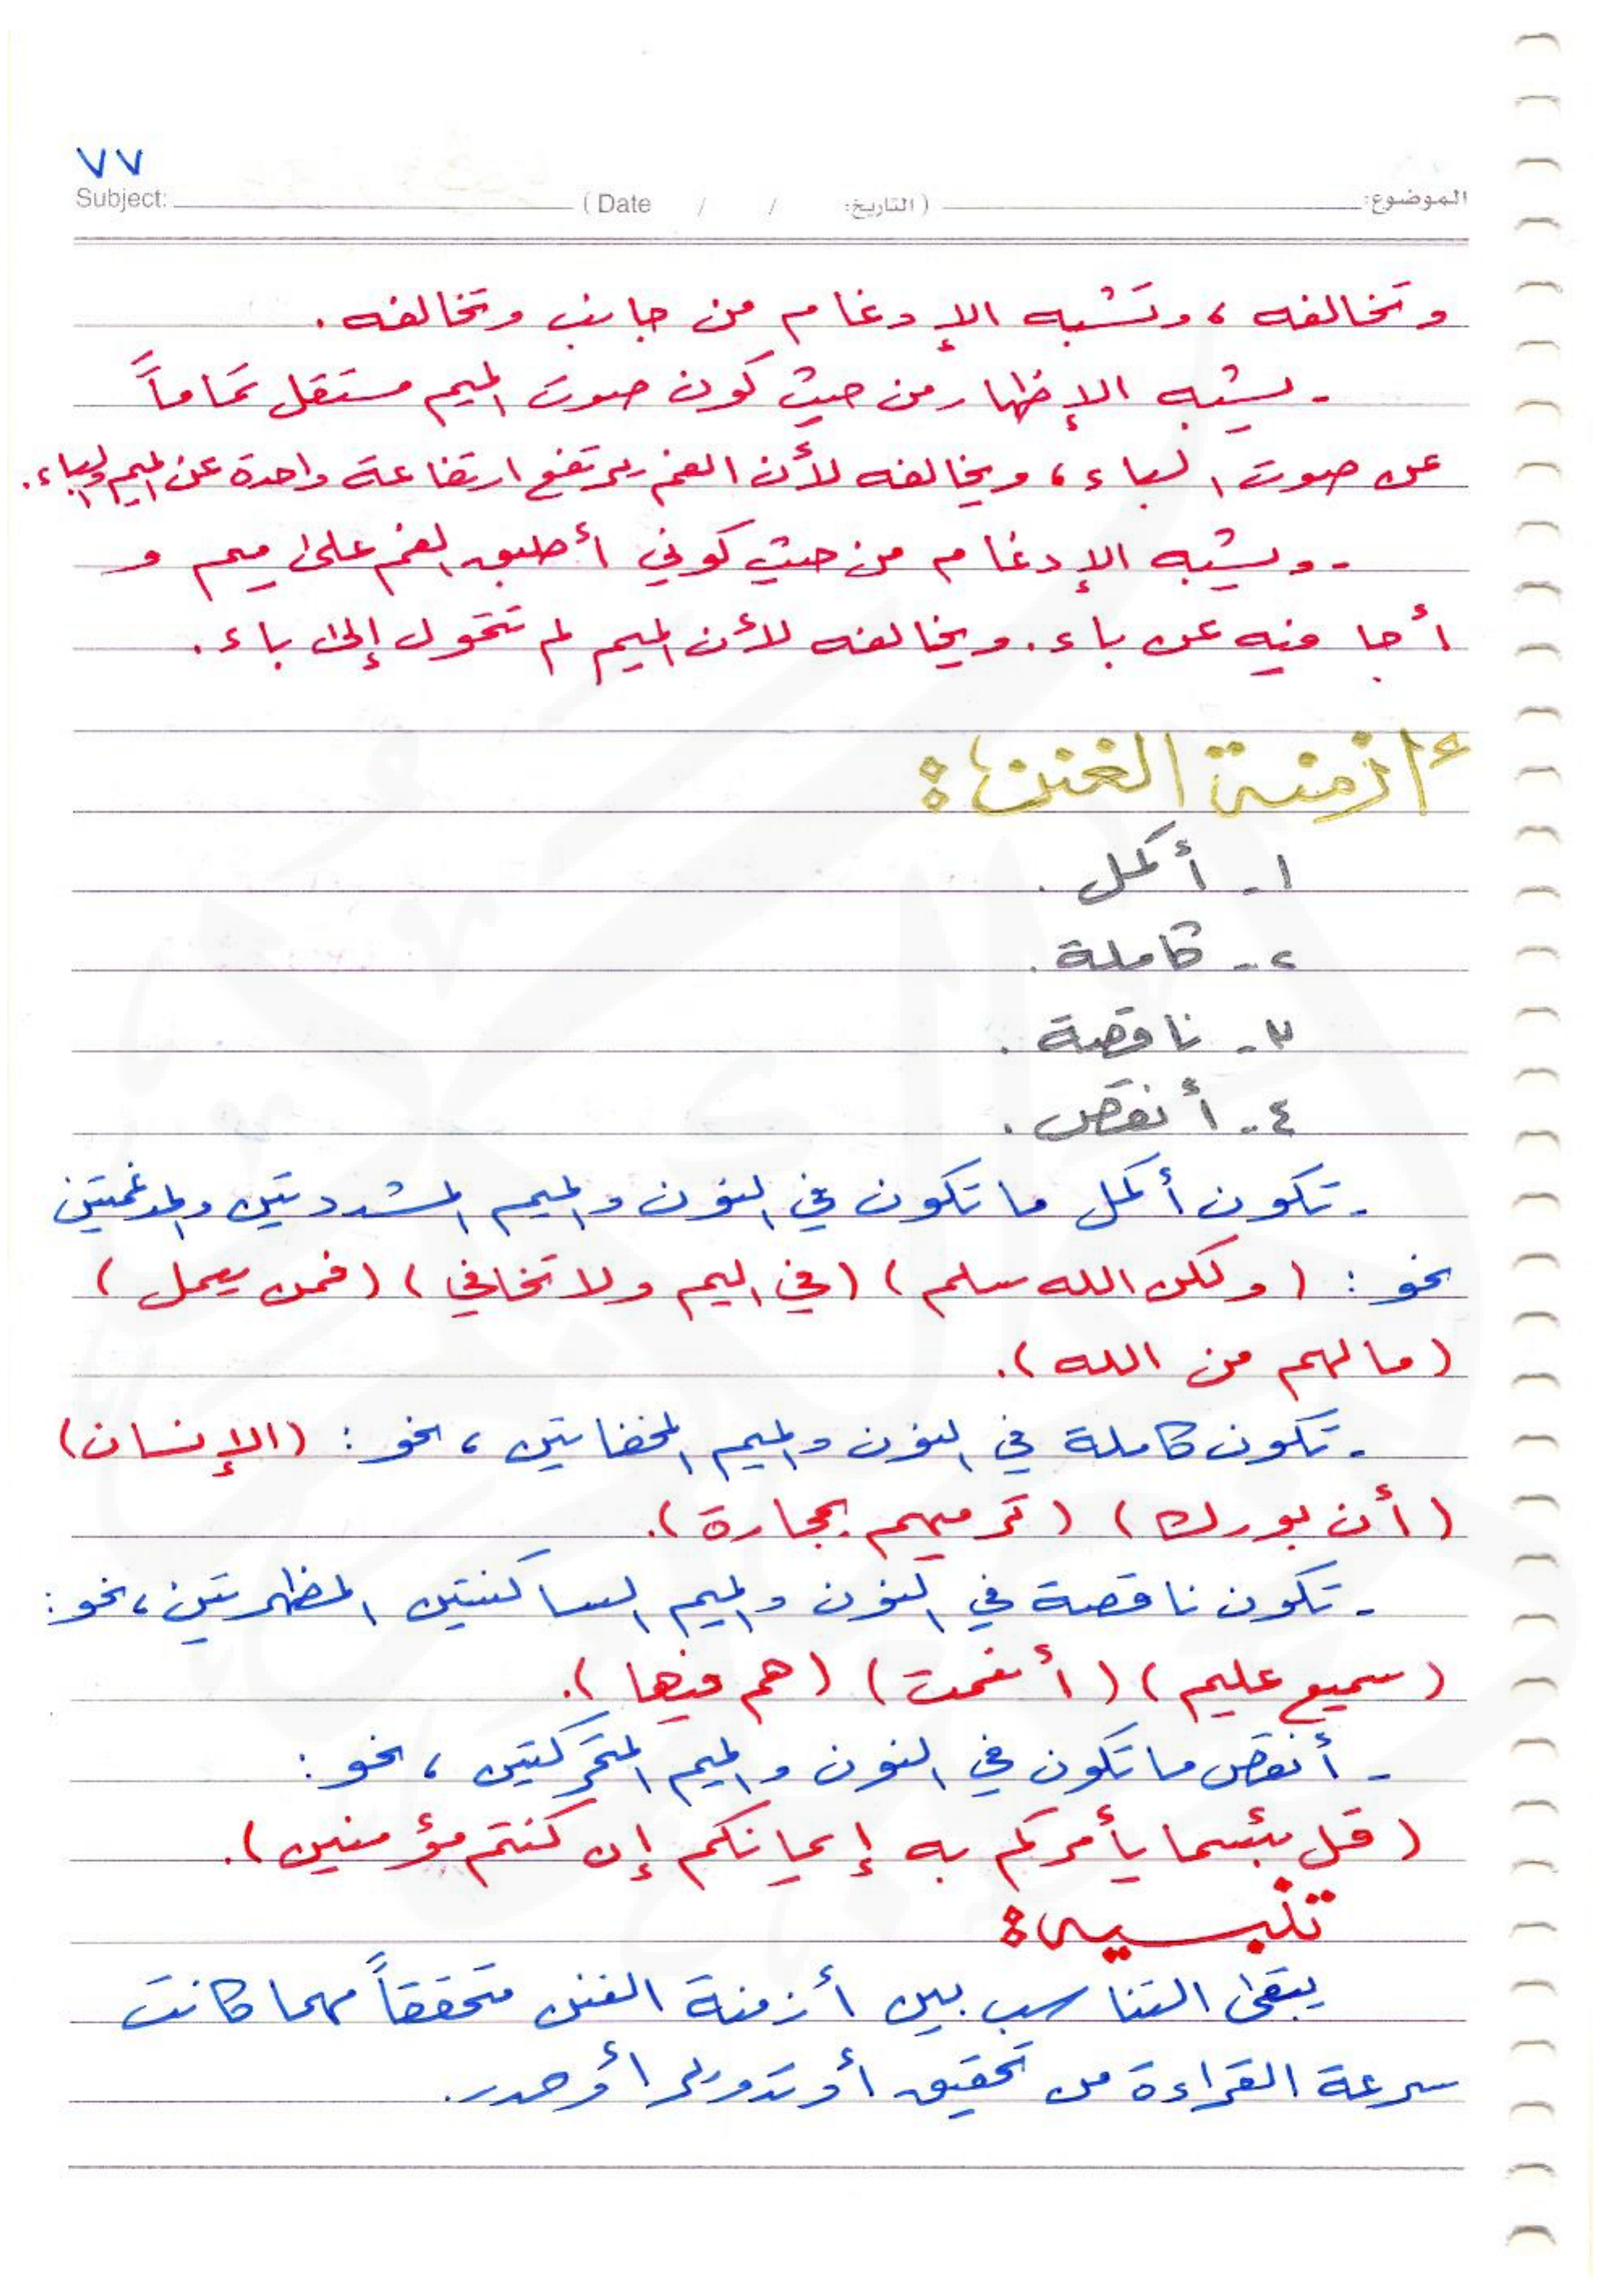 ٧٧
Subject: (Date / / التاريخ:) الموضوع:
وتخالفه ، وتشبه الإدغام من جانب وتخالفه .
- يشبه الإظهار من حيث كون صوت الميم مستقل تماماً
عن صوت الباء ، ويخالفه لأن الفم يرتفع ارتفاعة واحدة عن الميم والباء .
- ويشبه الإدغام من حيث كوني أطبق الفم على ميم و
أجا فيه عن باء . ويخالفه لأن الميم لم تتحول إلى باء .
أزمنة الغنن :
١- أكمل .
٢- كاملة .
٣- ناقصة .
٤- أنقص .
- تكون أكمل ما تكون في النون والميم المشددتين والمدغمتين
نحو : ( ولكن الله سلم ) ( في اليم ولا تخافي ) ( فمن يعمل )
( مالهم من الله ) .
- تكون كاملة في النون والميم المخفاتين ، نحو : ( الإنسان )
( أن بورك ) ( ترميهم بحجارة ) .
- تكون ناقصة في النون والميم الساكنتين المظهرتين ، نحو :
( سميع عليم ) ( أنعمت ) ( هم فيها ) .
- أنقص ما تكون في النون والميم المتحركتين ، نحو :
( قل بئسما يأمركم به إيمانكم إن كنتم مؤمنين ) .
تنبيه :
يبقى التناسب بين أزمنة الغنن متحققاً مهما كانت
سرعة القراءة من تحقيق أو تدوير أو حدر .